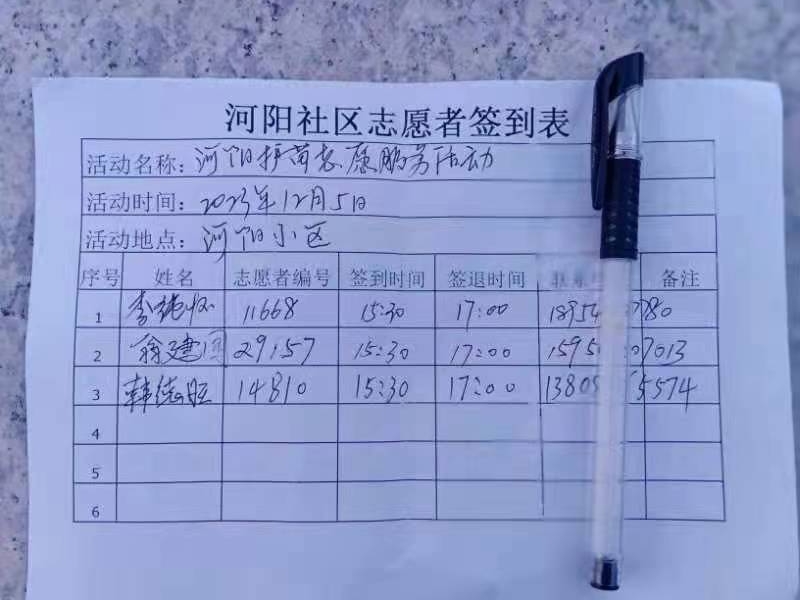 河阳社区志愿者签到表
活动名称：河阳护苗志愿服务活动
活动时间：2023年12月5日
活动地点：河阳小区
序号 姓名 志愿者编号 签到时间 签退时间 联系 备注
1 李 11668 15:30 17:00 18954 780
2 翁建国 29157 15:30 17:00 1595 07013
3 韩德旺 14810 15:30 17:00 13805 5574
4
5
6